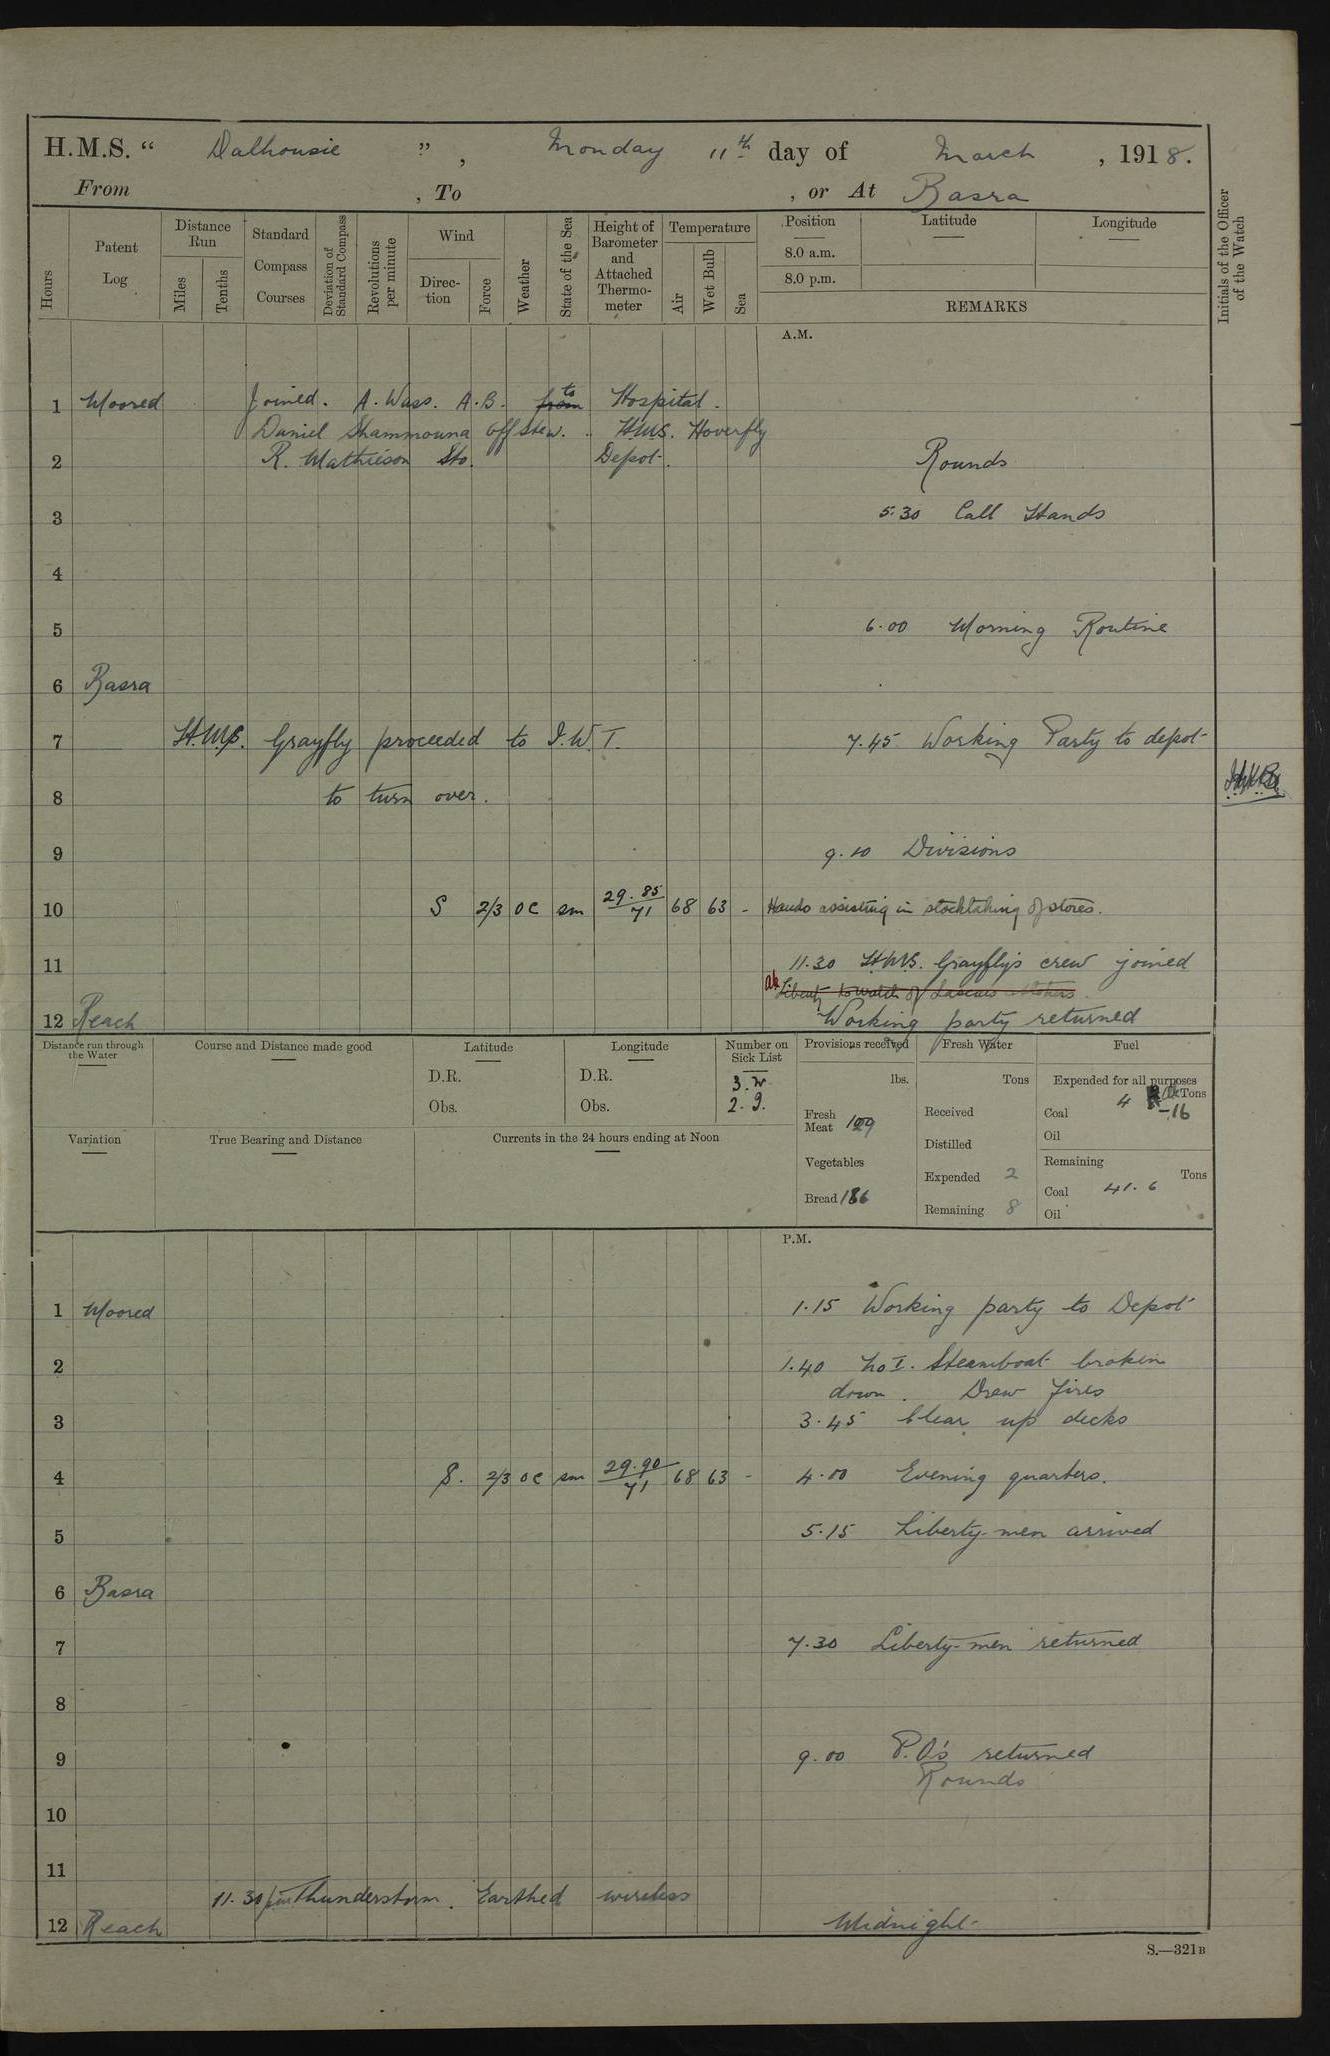 H.M.S. “ Dalhousie ” , Monday 11th day of March , 1918.
From , To , or At Basra
Hours
Patent Log
Distance Run
Miles
Tenths
Standard Compass Courses
Deviation of Standard Compass
Revolutions per minute
Wind
Direction
Force
Weather
State of the Sea
Height of Barometer and Attached Thermometer
Temperature
Air
Wet Bulb
Sea
Position
8.0 a.m.
8.0 p.m.
Latitude
Longitude
REMARKS
Initials of the Officer of the Watch
A.M.
1 Moored Joined. A. Wass. A.B. from to Hospital.
Daniel Shammouna Off Stew. .. H.M.S. Hoverfly
2 R. Mathieson Sto. Depot. Rounds
3 5.30 Call Hands
4
5 6.00 Morning Routine
6 Basra
7 H.M.S. Grayfly proceeded to I.W.T. 7.45 Working Party to depot
8 to turn over.
9 9.10 Divisions
10 S 2/3 oc sm 29.85/71 68 63 - Hands assisting in stocktaking of stores.
11 11.30 H.M.S. Grayfly's crew joined
Liberty to watch of Lascars
12 Reach Working party returned
Distance run through the Water
Course and Distance made good
Latitude
D.R.
Obs.
Longitude
D.R.
Obs.
Number on Sick List
3.
2.
Provisions received
lbs.
Fresh Meat 129
Vegetables
Bread 186
Fresh Water
Tons
Received
Distilled
Expended 2
Remaining 8
Fuel
Expended for all purposes
Tons
Coal 4 -16
Oil
Remaining
Tons
Coal 41.6
Oil
Variation
True Bearing and Distance
Currents in the 24 hours ending at Noon
P.M.
1 Moored 1.15 Working party to Depot
2 1.40 No I. Steamboat broken
down. Drew fires
3 3.45 Clear up decks
4 S. 2/3 oc sm 29.90/71 68 63 - 4.00 Evening quarters.
5 5.15 Liberty-men arrived
6 Basra
7 7.30 Liberty-men returned
8
9 9.00 P.O's returned
Rounds
10
11
11.30 pm Thunderstorm. Earthed wireless
12 Reach Midnight
S.—321B